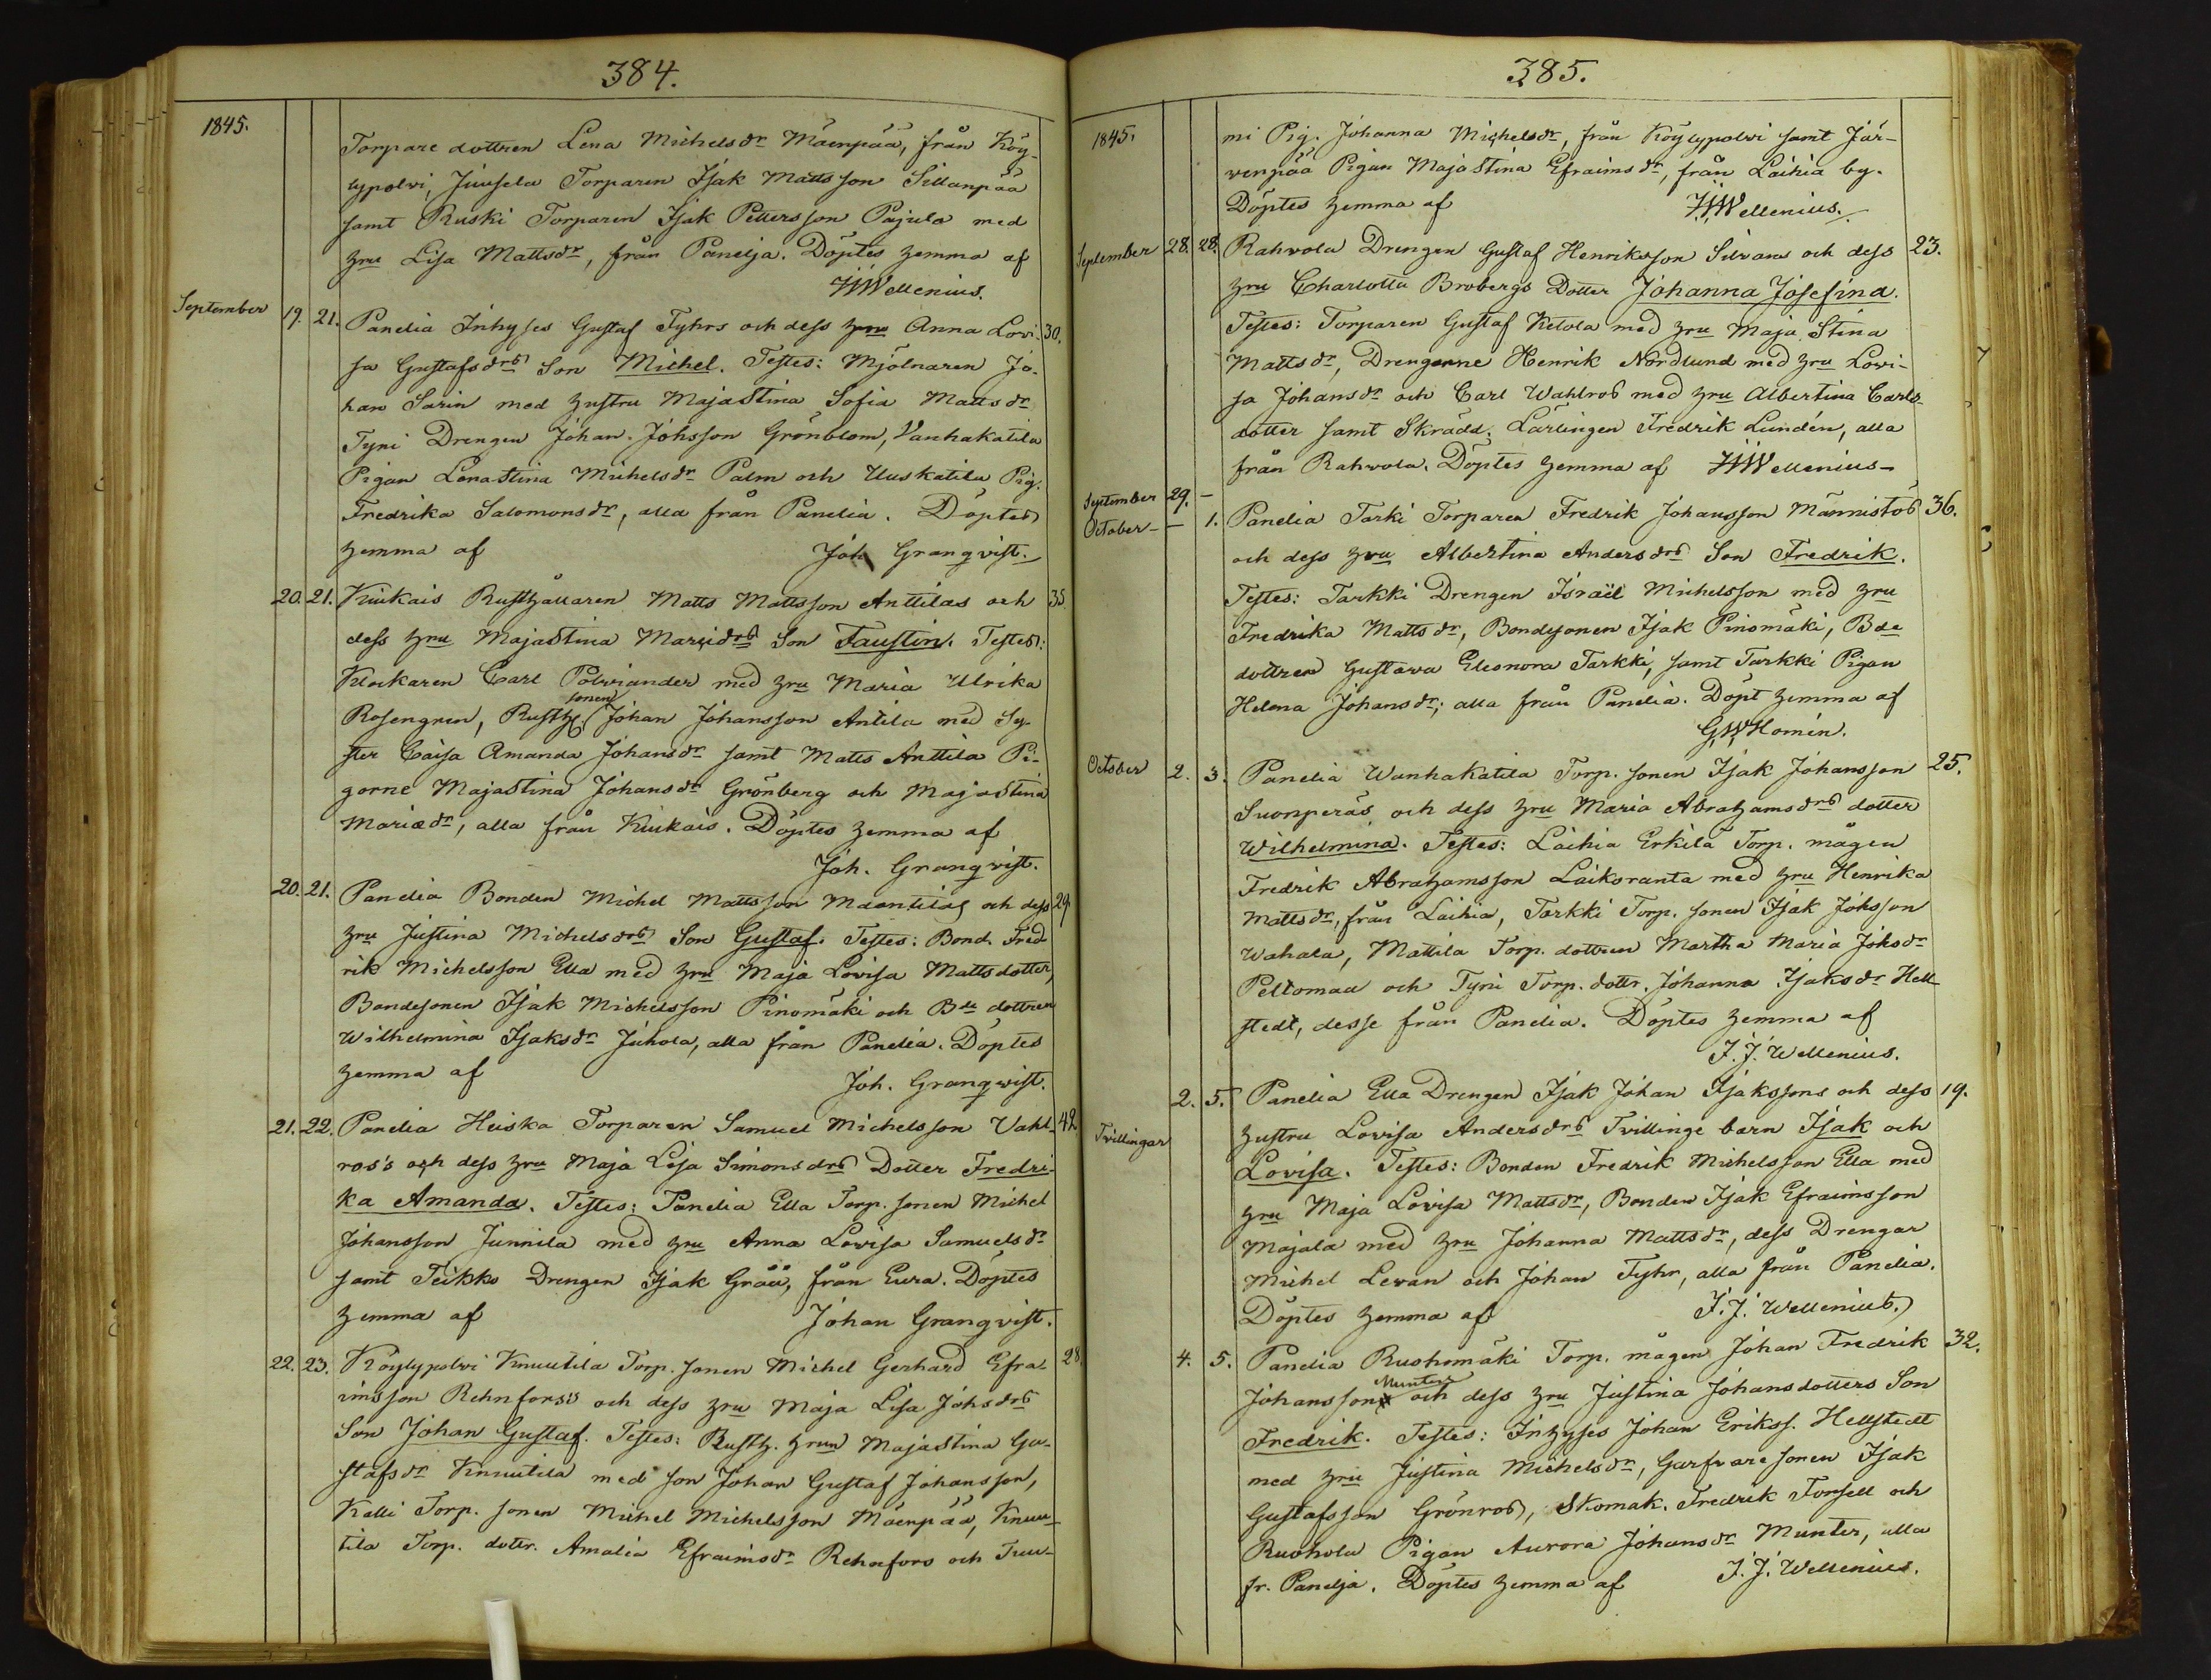 384.
1845.
Torpare dottren Lena Michelsdr Mäenpää, från Köy-
lypolvi, Juusela Torparen Isak Mattsson Sillanpää
samt Ruski Torparen Isak Pettersson Pajula med
hru Lisa Mattsdr, från Panelja. Döptes hemma af
JJWellenius.
September 19. 21. Panelia Inhyses Gustaf Fyhrs och dess hru Anna Lovi- 30.
sa Gustafsdrs Son Michel. Testes: Mjölnaren Jo-
han Sarin med hustru Majastina Sofia Mattsdr
Tyni Drengen Johan Johsson Grönblom, Vanhakatila
Pigan Lenastina Michelsdr Palm och Uuskatila Pig.
Fredrika Salomonsdr, alla från Panelia. Döptes
hemma af Joh Granqvist.
20. 21. Kiukais Rusthållaren Matts Mattsson Anttilas och 35.
dess hru Majastina Mariædrs Son Faustin. Testes:
Klockaren Carl Polviander med hru Maria Ulrika
Rosengren, Rusth. sonen Johan Johansson Antila med Sy-
ster Caisa Amanda Johansdr samt Matts Anttila Pi-
gorne Majastina Johansdr Grönberg och Majastina
Mariædr, alla från Kiukais. Döptes hemma af
Joh. Granqvist.
20. 21. Panelia Bonden Michel Mattsson Maantilas och dess 29.
hru Justina Michelsdrs Son Gustaf. Testes: Bond. Fred-
rik Michelsson Ella med hru Maja Lovisa Mattsdotter,
Bondesonen Isak Michelsson Pinomäki och Bde dottren
Wilhelmina Isaksdr Juhola, alla från Panelia. Döptes
hemma af Joh. Granqvist.
21. 22. Panelia Heiska Torparen Samuel Michelsson Vahl- 42.
ros's och dess hru Maja Lisa Simonsdrs Dotter Fredri-
ka Amanda. Testes: Panelia Ella Torp. sonen Michel
Johansson Junnila med hru Anna Lovisa Samuelsdr
samt Teikko Drengen Isak Gråå, från Eura. Döptes
hemma af Johan Granqvist.
22. 23. Köylypolvi Knuutila Torp. sonen Michel Gerhard Efra- 28.
imsson Rehnfors's och dess hru Maja Lisa Johsdrs
Son Johan Gustaf. Testes: Rusth. hrun Majastina Gu-
stafsdr Knuutila med son Johan Gustaf Johansson,
Kalli Torp. sonen Michel Michelsson Mäenpää, Knuu-
tila Torp. dottr. Amalia Efraimsdr Rehnfors och Tuu-
385.
1845.
mi Pig. Johanna Michelsdr, från Köylypolvi samt Jär-
venpää Pigan Majastina Efraimsdr, från Laihia by.
Döptes hemma af JJWellenius.
September 28. 28. Rahvola Drengen Gustaf Henriksson Silvans och dess 23.
hru Charlotta Brobergs Dotter Johanna Josefina.
Testes: Torparen Gustaf Ketola med hru Maja Stina
Mattsdr, Drengarne Henrik Nordlund med hru Lovi-
sa Johansdr och Carl Wahlros med hru Albertina Carls-
dotter samt Skrädd. Lärlingen Fredrik Lundén, alla
från Rahvola. Döptes hemma af JJWellenius-
September 29. -
October - 1. Panelia Tarki Torparen Fredrik Johansson Männistös 36.
och dess hru Albertina Andersdrs Son Fredrik.
Testes: Tarkki Drengen Israël Michelsson med hru
Fredrika Mattsdr, Bondesonen Isak Pinomäki, Bde
dottren Gustava Eleonora Tarkki, samt Tarkki Pigan
Helena Johansdr; alla från Panelia. Döpt hemma af
GWHomén.
October 2. 3. Panelia Wanhakatila Torp. sonen Isak Johansson 25.
Suonperäs och dess hru Maria Abrahamsdrs dotter
Wilhelmina. Testes: Laihia Erkilä Torp. mågen
Fredrik Abrahamsson Laikoranta med hru Henrika
Mattsdr, från Laihia, Tarkki Torp. sonen Isak Johsson
Wahala, Mattila Torp. dottren Martha Maria Johsdr
Peltomaa och Tyni Torp. dottr. Johanna Isaksdr Hell-
stedt, desse från Panelia. Döptes hemma af
J.J. Wellenius.
2. 5. Panelia Ella Drengen Isak Johan Isakssons och dess 19.
Tvillingar hustru Lovisa Andersdrs Tvillinge barn Isak och
Lovisa. Testes: Bonden Fredrik Michelsson Ella med
hru Maja Lovisa Mattsdr, Bonden Isak Efraimsson
Majala med hru Johanna Mattsdr, dess Drengar
Michel Levan och Johan Fyhr, alla från Panelia.
Döptes hemma af J.J. Wellenius.
4. 5. Panelia Ruohomäki Torp. mågen Johan Fredrik 32.
Johansson Munters och dess hru Justina Johansdotters Son
Fredrik. Testes: Inhyses Johan Erikss. Hellstedt
med hru Justina Michelsdr, Garfvaresonen Isak
Gustafsson Grönros, Skomak. Fredrik Forsell och
Ruohola Pigan Aurora Johansdr Munter, alla
fr. Panelja. Döptes hemma af J.J. Wellenius.